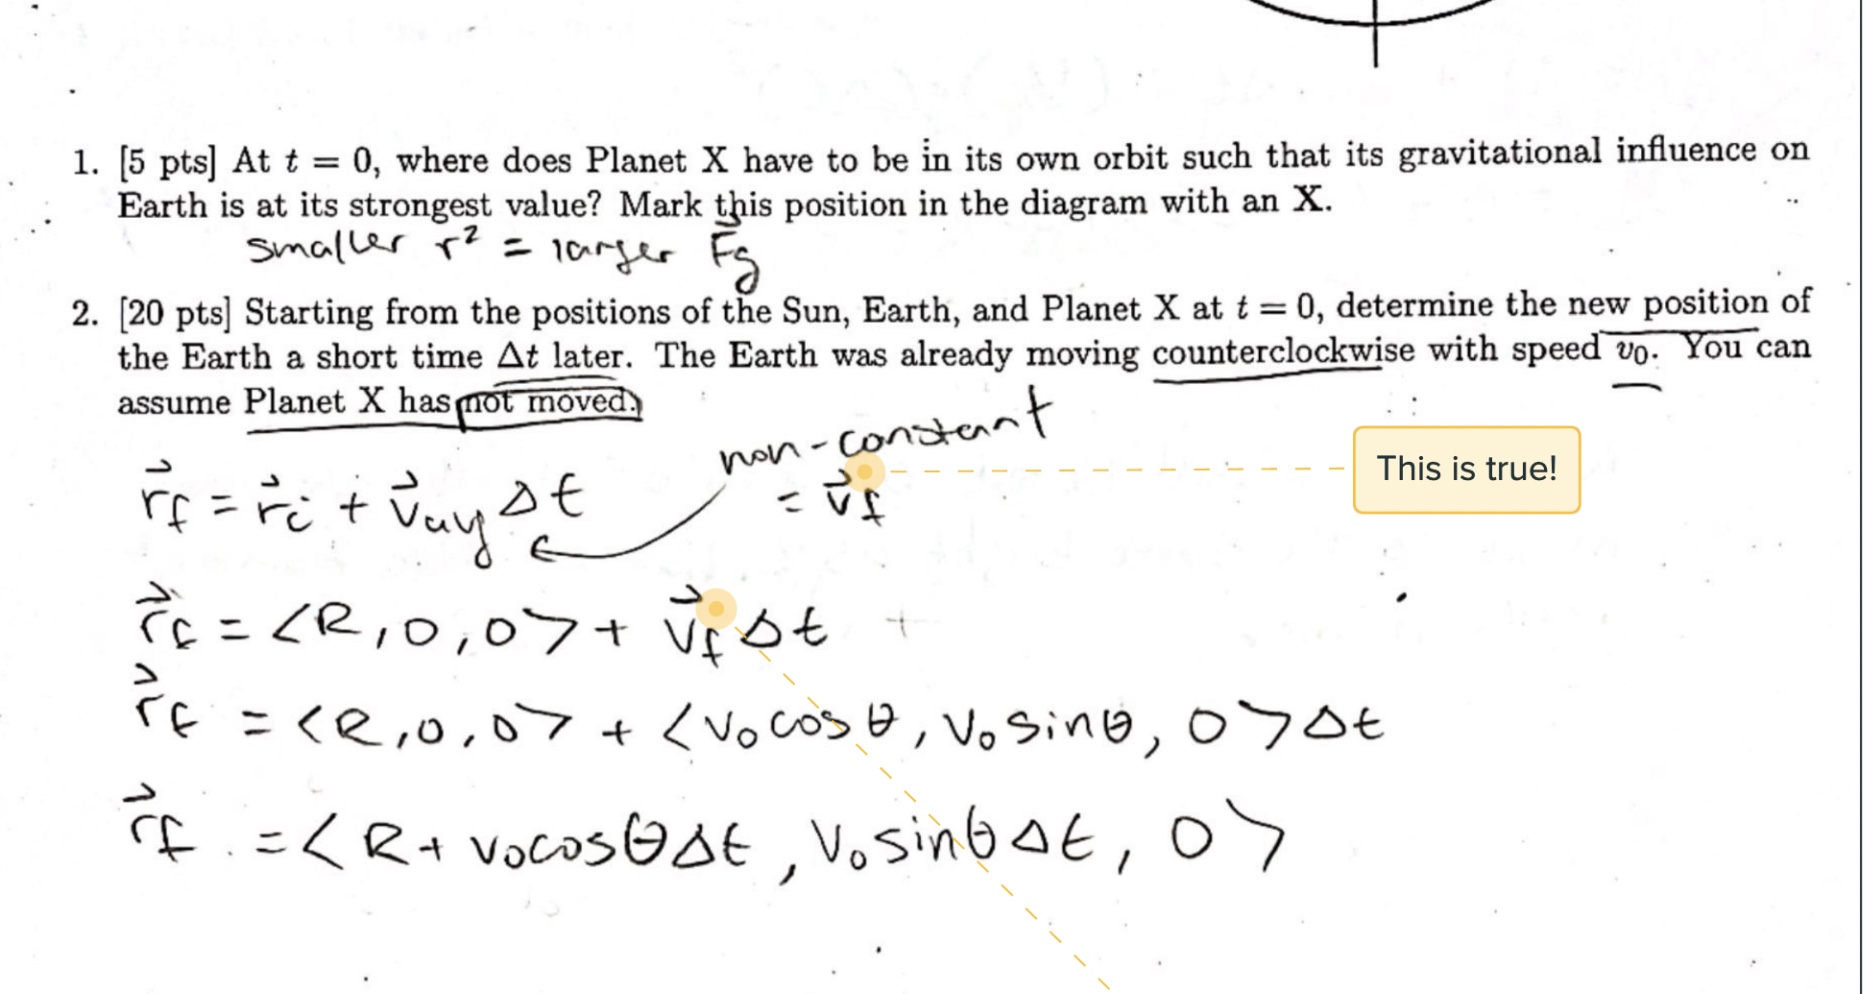 1. [5 pts] At t = 0, where does Planet X have to be in its own orbit such that its gravitational influence on
Earth is at its strongest value? Mark this position in the diagram with an X.
smaller r² = larger F⃗g
2. [20 pts] Starting from the positions of the Sun, Earth, and Planet X at t = 0, determine the new position of
the Earth a short time Δt later. The Earth was already moving counterclockwise with speed v₀. You can
assume Planet X has not moved.
non-constant
= v⃗f
This is true!
r⃗f = r⃗i + v⃗avg Δt
r⃗f = <R, 0, 0> + v⃗f Δt
r⃗f = <R, 0, 0> + <v₀ cos θ, v₀ sin θ, 0> Δt
r⃗f = <R + v₀ cos θ Δt, v₀ sin θ Δt, 0>